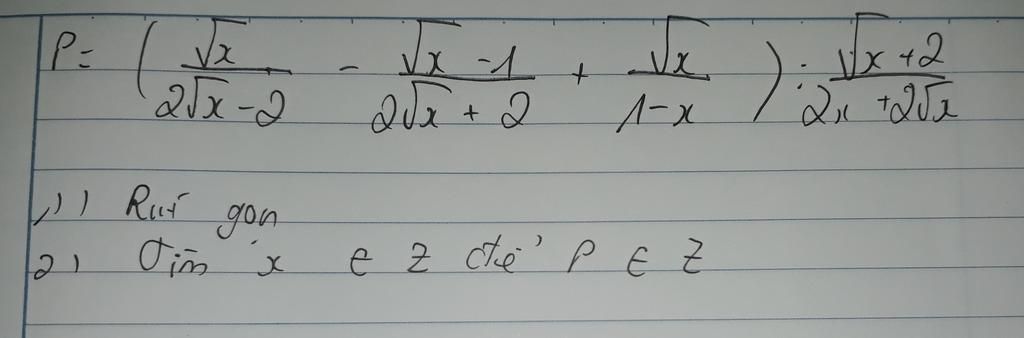 P = ( √x / (2√x - 2) - (√x - 1) / (2√x + 2) + √x / (1 - x) ) : (√x + 2) / (2x + 2√x)
1) Rút gọn
2) Tìm x ∈ Z để P ∈ Z